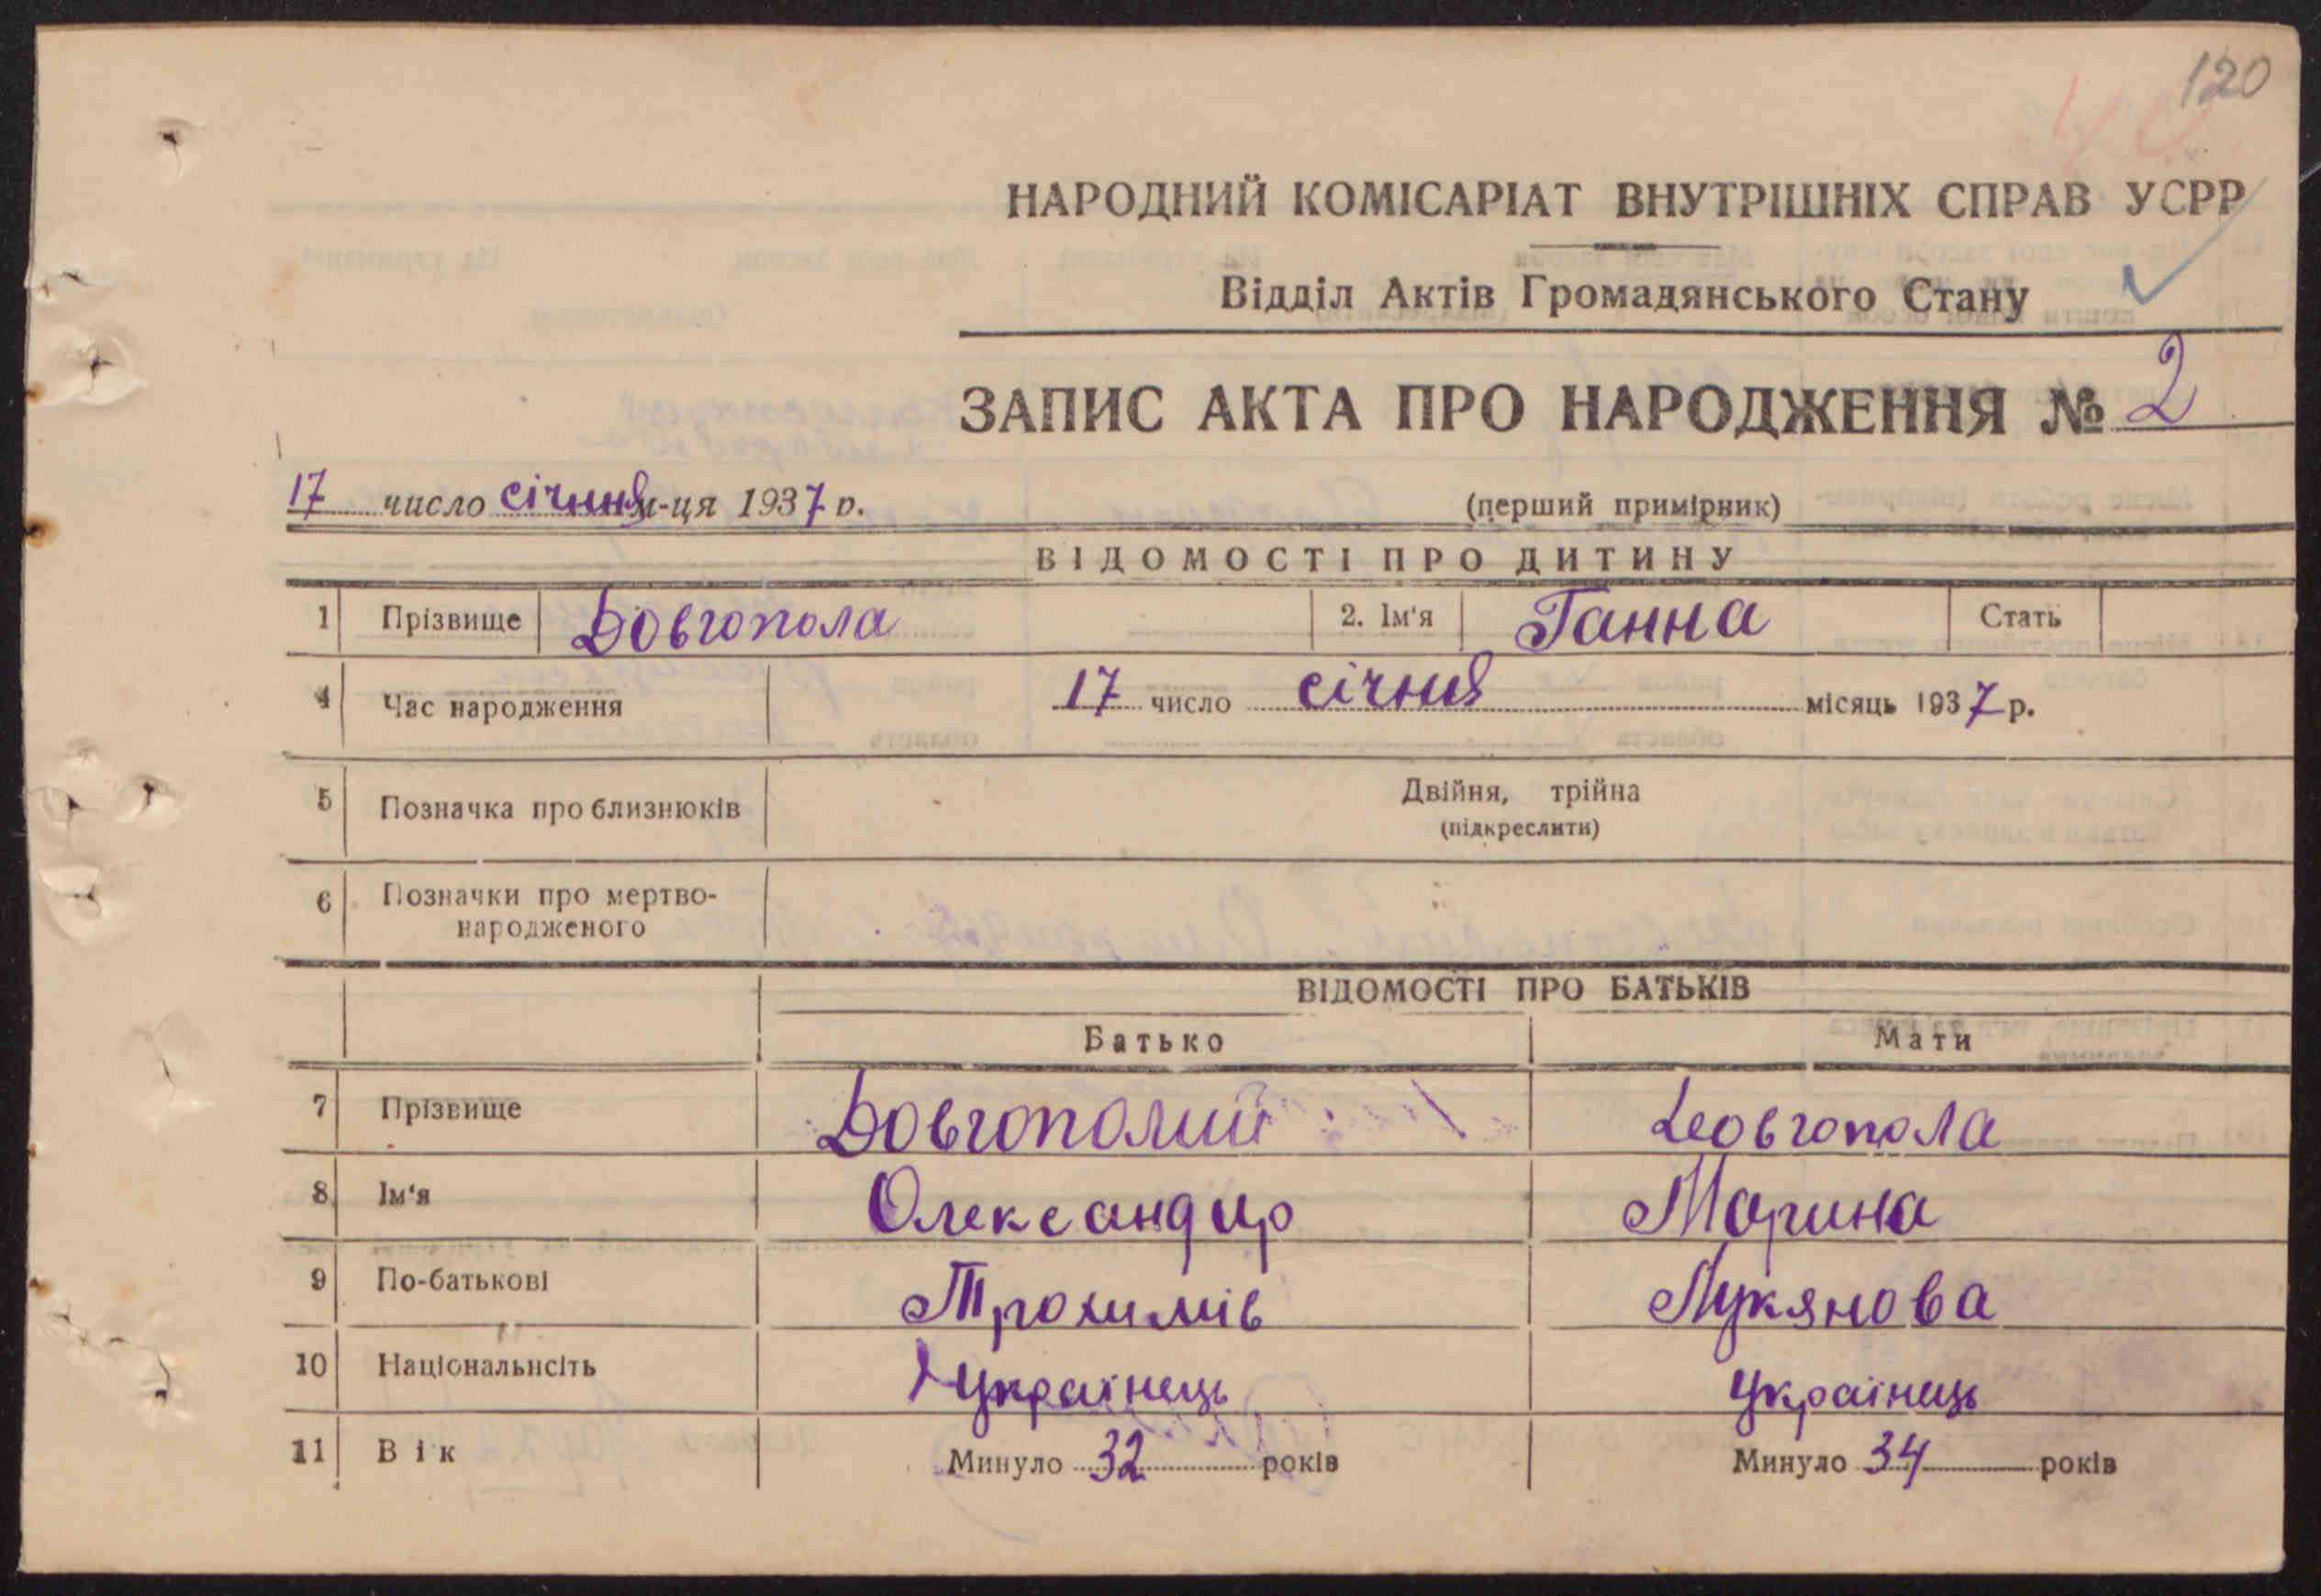 120
40
НАРОДНИЙ КОМІСАРІАТ ВНУТРІШНІХ СПРАВ УСРР
Відділ Актів Громадянського Стану
ЗАПИС АКТА ПРО НАРОДЖЕННЯ № 2
17 число січня м-ця 1937 р.
(перший примірник)
ВІДОМОСТІ ПРО ДИТИНУ
1 Прізвище Довгопола 2. Ім'я Ганна Стать
4 Час народження 17 число січня місяць 1937 р.
5 Позначка про близнюків Двійня, трійна
(підкреслити)
6 Позначки про мертво-
народженого
ВІДОМОСТІ ПРО БАТЬКІВ
Батько Мати
7 Прізвище Довгополий Довгопола
8 Ім'я Олександир Марина
9 По-батькові Трохимів Лукянова
10 Національнсіть Українець Українець
11 Вік Минуло 32 років Минуло 34 років